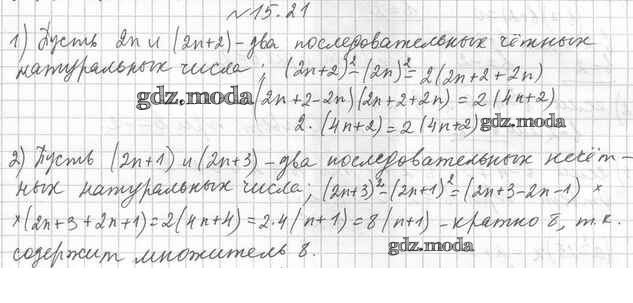 №15.21
1) Пусть 2n и (2n+2) – два последовательных чётных
натуральных числа; (2n+2)²–(2n)²=2(2n+2+2n)
gdz.moda (2n+2-2n)(2n+2+2n) = 2(4n+2)
2·(4n+2)=2(4n+2) gdz.moda
2) Пусть (2n+1) и (2n+3) – два последовательных нечёт-
ных натуральных числа; (2n+3)²–(2n+1)²=(2n+3-2n-1) ×
×(2n+3+2n+1)=2(4n+4)=2·4(n+1)=8(n+1) – кратно 8, т.к.
содержит множитель 8.
gdz.moda